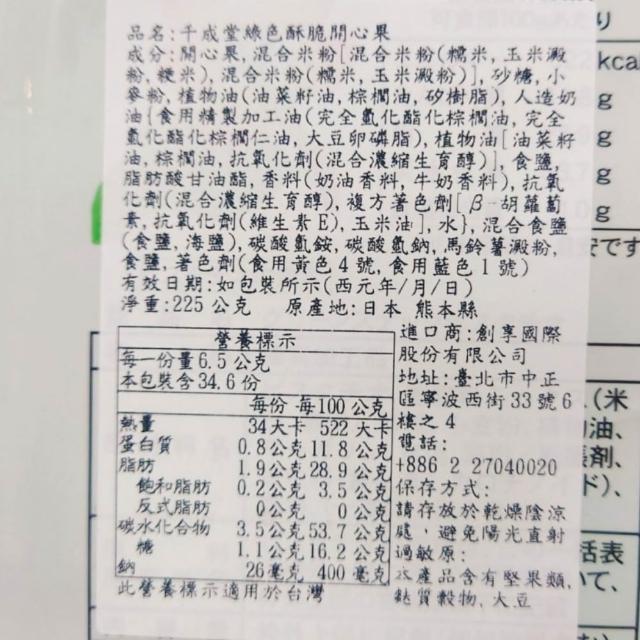 品名:千成堂綠色酥脆開心果
成分:開心果,混合米粉[混合米粉(糯米,玉米澱
粉,粳米),混合米粉(糯米,玉米澱粉)],砂糖,小
麥粉,植物油(油菜籽油,棕櫚油,矽樹脂),人造奶
油{食用精製加工油(完全氫化酯化棕櫚油,完全
氫化酯化棕櫚仁油,大豆卵磷脂),植物油[油菜籽
油,棕櫚油,抗氧化劑(混合濃縮生育醇)],食鹽,
脂肪酸甘油酯,香料(奶油香料,牛奶香料),抗氧
化劑(混合濃縮生育醇),複方著色劑[β-胡蘿蔔
素,抗氧化劑(維生素E),玉米油],水},混合食鹽
(食鹽,海鹽),碳酸氫銨,碳酸氫鈉,馬鈴薯澱粉,
食鹽,著色劑(食用黃色4號,食用藍色1號)
有效日期:如包裝所示(西元年/月/日)
淨重:225公克 原產地:日本 熊本縣
營養標示
每一份量6.5公克
本包裝含34.6份
每份 每100公克
熱量 34大卡 522大卡
蛋白質 0.8公克 11.8公克
脂肪 1.9公克 28.9公克
飽和脂肪 0.2公克 3.5公克
反式脂肪 0公克 0公克
碳水化合物 3.5公克 53.7公克
糖 1.1公克 16.2公克
鈉 26毫克 400毫克
此營養標示適用於台灣
進口商:創享國際
股份有限公司
地址:臺北市中正
區寧波西街33號6
樓之4
電話:
+886 2 27040020
保存方式:
請存放於乾燥陰涼
處,避免陽光直射
過敏原:
本產品含有堅果類,
麩質穀物,大豆
り
kcal
g
g
g
g
です
(米
油、
剤、
ド)、
話表
いて、